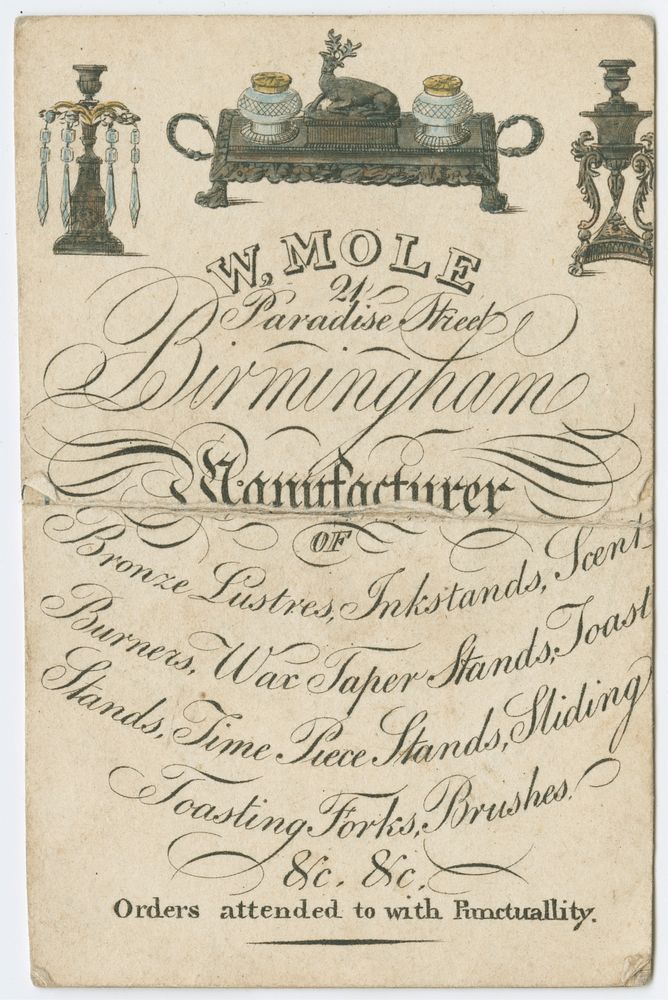 W, MOLE
21
Paradise Street
Birmingham
Manufacturer
OF
Bronze Lustres, Inkstands, Scent
Burners, Wax Taper Stands, Toast
Stands, Time Piece Stands, Sliding
Toasting Forks, Brushes.
&c. &c.
Orders attended to with Punctuallity.